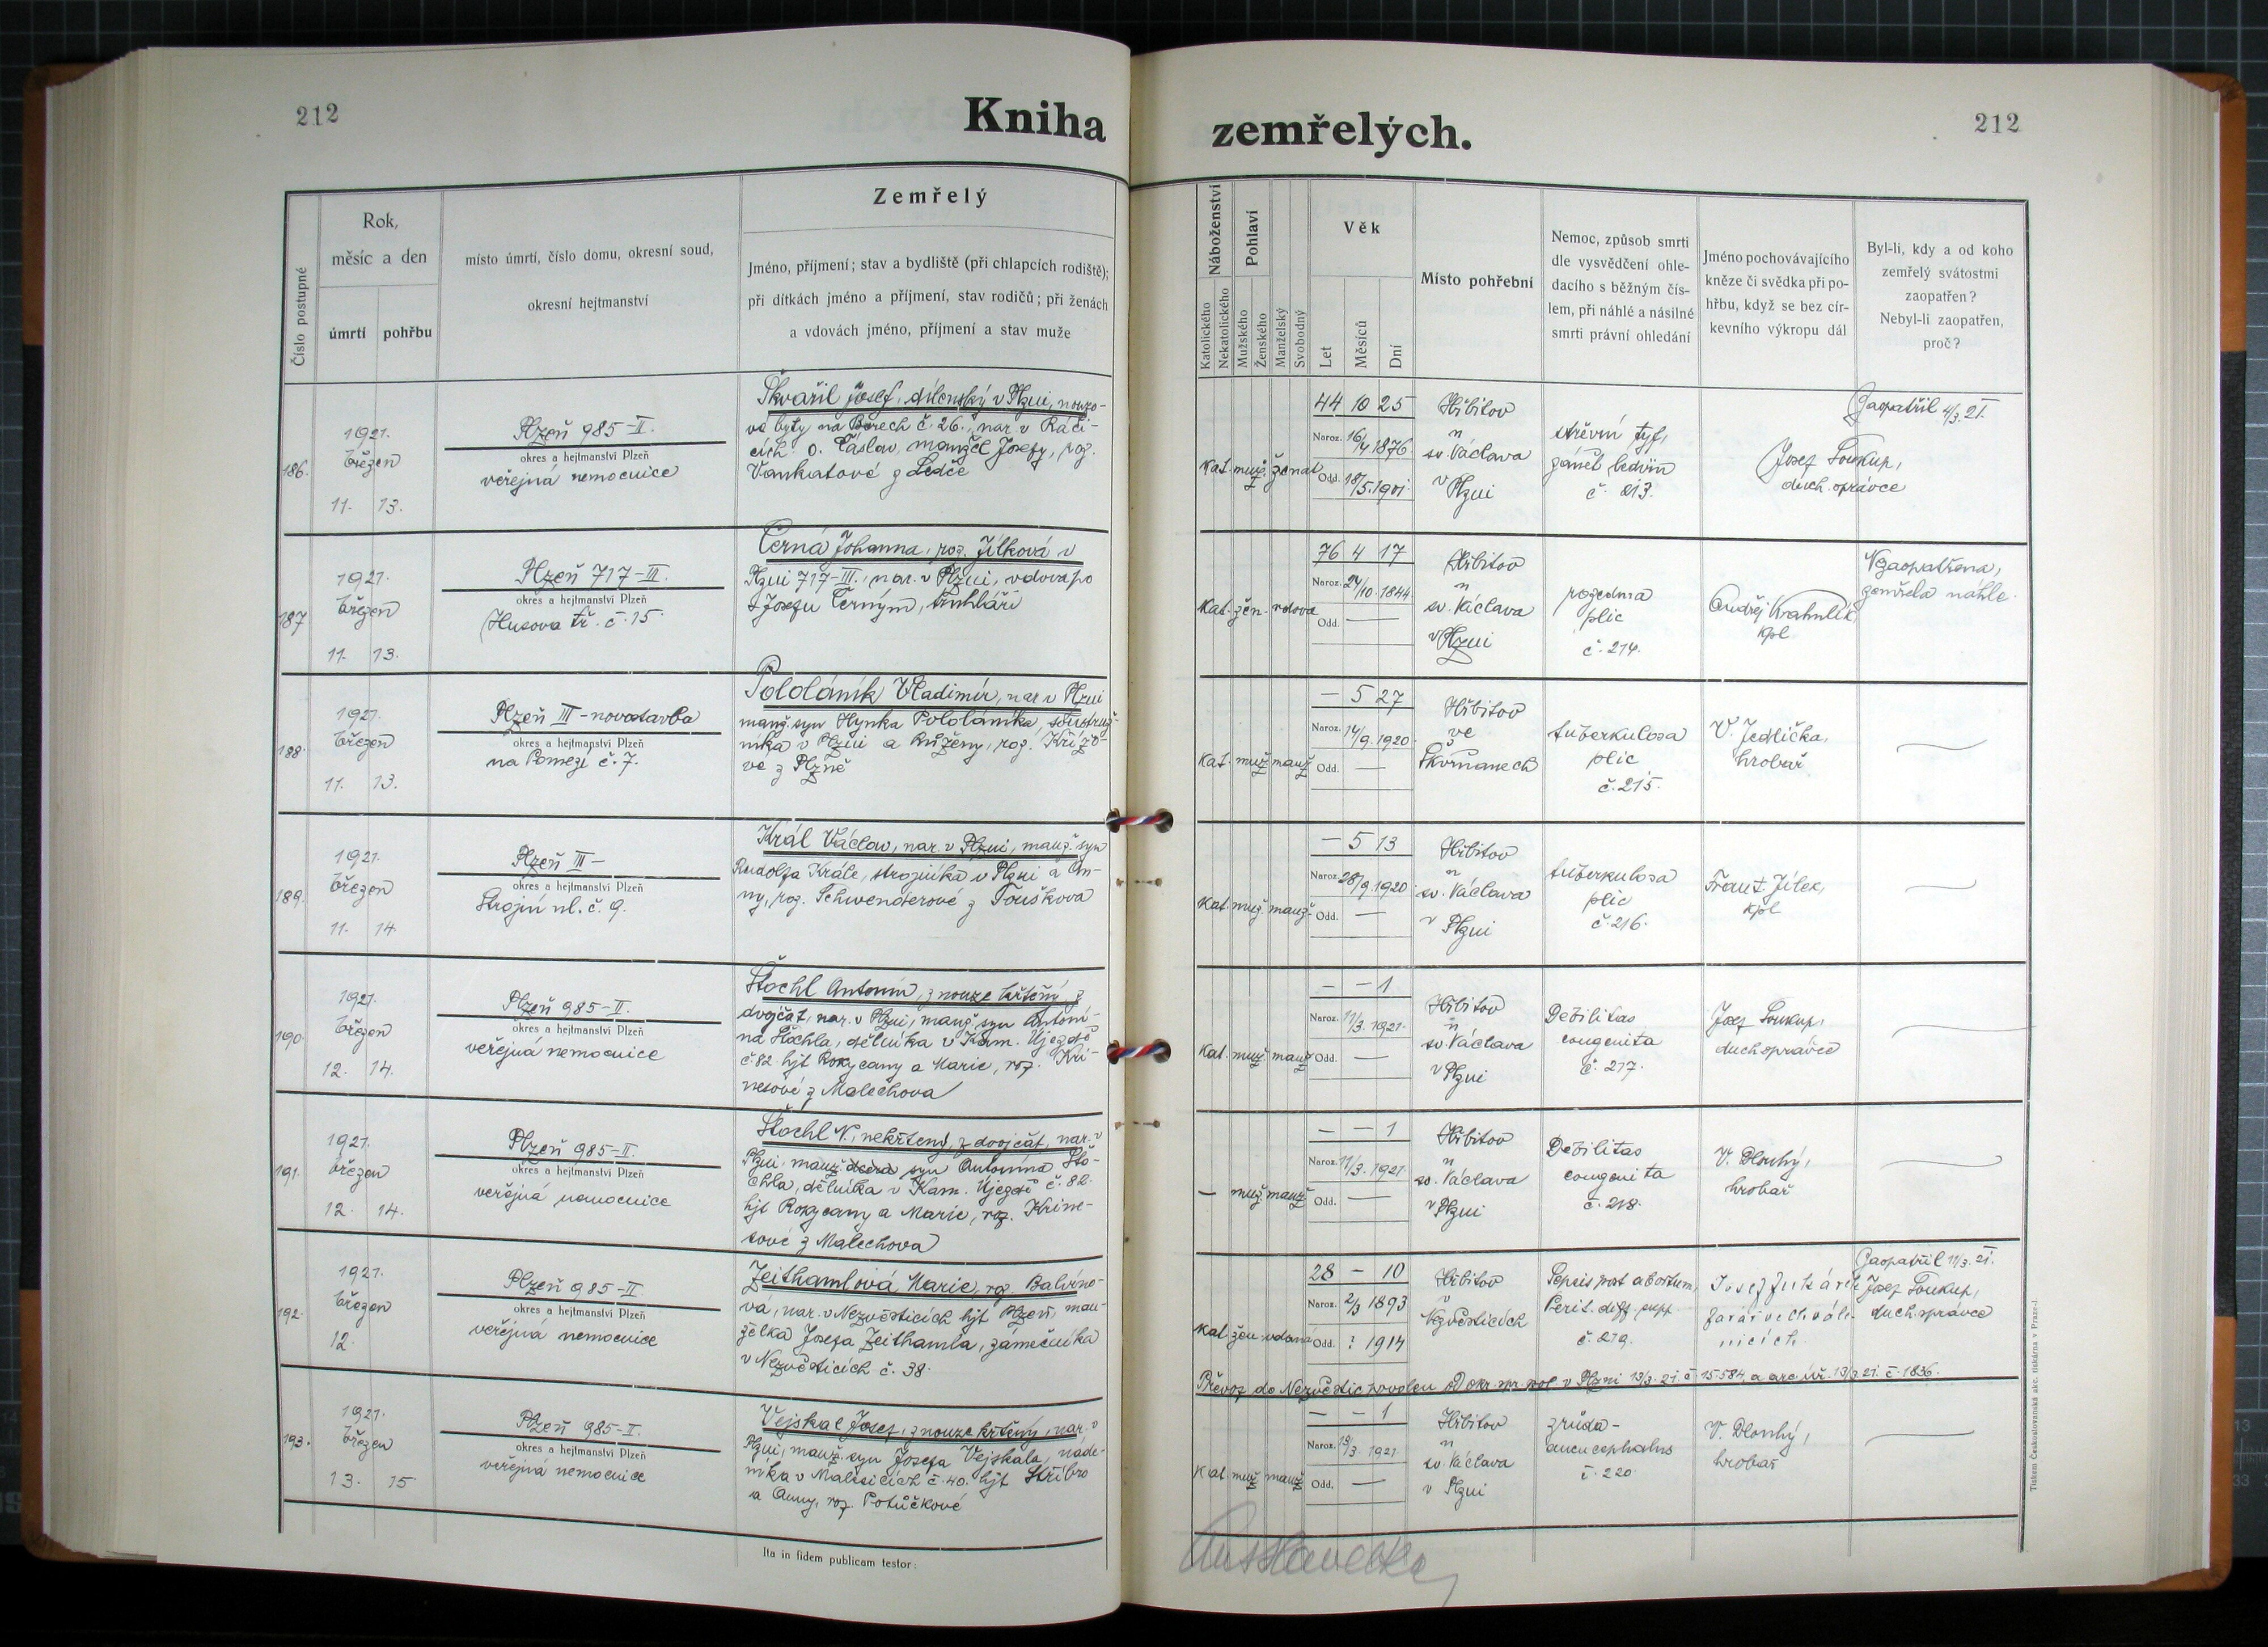 212
Kniha
zemřelých.
212
Číslo postupné
Rok,
měsíc a den
úmrtí
pohřbu
místo úmrtí, číslo domu, okresní soud,
okresní hejtmanství
Zemřelý
Jméno, příjmení; stav a bydliště (při chlapcích rodiště);
při dítkách jméno a příjmení, stav rodičů; při ženách
a vdovách jméno, příjmení a stav muže
Náboženství
Katolického
Nekatolického
Pohlaví
Mužského
Ženského
Manželský
Svobodný
Věk
Let
Měsíců
Dní
Místo pohřební
Nemoc, způsob smrti
dle vysvědčení ohle-
dacího s běžným čís-
lem, při náhlé a násilné
smrti právní ohledání
Jméno pochovávajícího
kněze či svědka při po-
hřbu, když se bez cír-
kevního výkropu dál
Byl-li, kdy a od koho
zemřelý svátostmi
zaopatřen?
Nebyl-li zaopatřen,
proč?
186.
1921.
březen
11. 13.
Plzeň 985-II.
okres a hejtmanství Plzeň
veřejná nemocnice
Škvařil Josef, dílenský v Plzni, nouzo-
vé byty na Borech č. 26., nar. v Rači-
cích o. Čáslav, manžel Josefy, roz.
Vaňkatové z Ledče
kat. muž. ženat
44 10 25
Naroz. 16/4 1876
Odd. 18/5. 1901.
Hřbitov
u
sv. Václava
v Plzni
střevní tyf,
zánět ledvin
č. 213.
Josef Soukup,
duch. správce
Zaopatřil 4/3. 21.
187
1921.
březen
11. 13.
Plzeň 717-III.
okres a hejtmanství Plzeň
Husova tř. č. 15.
Černá Johanna, roz. Jílková v
Plzni 717-III., nar. v Plzni, vdova po
† Josefu Černým, truhláři
kat. žen. vdova
76 4 17
Naroz. 24/10. 1844
Odd. —
Hřbitov
u
sv. Václava
v Plzni
rozedma
plic
č. 214.
Ondřej Krahulík,
kpl
Nezaopatřena,
zemřela náhle.
188.
1921.
březen
11. 13.
Plzeň III-novostavba
okres a hejtmanství Plzeň
na Pomezí č. 7.
Pololáník Vladimír, nar. v Plzni
manž. syn Hynka Pololáníka, soustruž-
níka v Plzni a Růženy, roz. Křížo-
vé z Plzně
kat. muž. manž.
— 5 27
Naroz. 14/9. 1920.
Odd. —
Hřbitov
ve
Škvrňanech
tuberkulosa
plic
č. 215.
V. Jedlička,
hrobař
189.
1921.
březen
11. 14.
Plzeň III-
okres a hejtmanství Plzeň
Strojní ul. č. 9.
Král Václav, nar. v Plzni, manž. syn
Rudolfa Krále, strojníka v Plzni a An-
ny, roz. Schwenderové z Touškova
kat. muž. manž.
— 5 13
Naroz. 28/9. 1920
Odd. —
Hřbitov
u
sv. Václava
v Plzni
tuberkulosa
plic
č. 216.
Frant. Jílek,
kpl
190.
1921.
březen
12. 14.
Plzeň 985-II.
okres a hejtmanství Plzeň
veřejná nemocnice
Štochl Antonín, z nouze křtěný, z
dvojčat, nar. v Plzni, manž. syn Antoní-
na Štochla, dělníka v Kam. Újezdě
č. 82 hjt Rokycany a Marie, roz. Kři-
nesové z Malechova
kat. muž. manž
— — 1
Naroz. 11/3. 1921.
Odd. —
Hřbitov
u
sv. Václava
v Plzni
Debilitas
congenita
č. 217.
Josef Soukup,
duch. správce
191.
1921.
březen
12. 14.
Plzeň 985-II.
okres a hejtmanství Plzeň
veřejná nemocnice
Štochl N., nekřtený, z dvojčat, nar. v
Plzni, manž. dcera syn Antonína Što-
chla, dělníka v Kam. Újezdě č. 82.
hjt Rokycany a Marie, roz. Křine-
sové z Malechova
— muž. manž
— — 1
Naroz. 11/3. 1921.
Odd. —
Hřbitov
u
sv. Václava
v Plzni
Debilitas
congenita
č. 218.
V. Dlouhý,
hrobař
192.
1921.
březen
12.
Plzeň 985-II.
okres a hejtmanství Plzeň
veřejná nemocnice
Zeithamlová Marie, roz. Balvíno-
vá, nar. v Nezvěsticích hjt Plzeň, man-
želka Josefa Zeithamla, zámečníka
v Nezvěsticích č. 38.
kat. žen. vdaná
28 — 10
Naroz. 2/3 1893
Odd. : 1914
Hřbitov
v
Nezvěsticích
Sepsis post abortum,
Perit. diff. supp.
č. 219.
farář ve Chvále-
nicích.
Zaopatřil 11/3. 21.
Josef Soukup,
duch. správce
Převoz do Nezvěstic povolen Od okr. spr. pol. v Plzni 13/3. 21. č. 15.584, a arc. úř. 13/3. 21. č. 1836.
193.
1921.
březen
13. 15
Plzeň 985-II.
okres a hejtmanství Plzeň
veřejná nemocnice
Vejskal Josef, z nouze křtěný, nar. v
Plzni, manž. syn Josefa Vejskala, nade-
níka v Malesicích č. 40. hjt Stříbro
a Anny, roz. Potůčkové
kat. muž. manž
— — 1
Naroz. 13/3. 1921.
Odd. —
Hřbitov
u
sv. Václava
v Plzni
zrůda-
anencephalus
č. 220
V. Dlouhý,
hrobař
Ita in fidem publicam testor:
Tiskem Českoslovanská akc. tiskárna v Praze-I